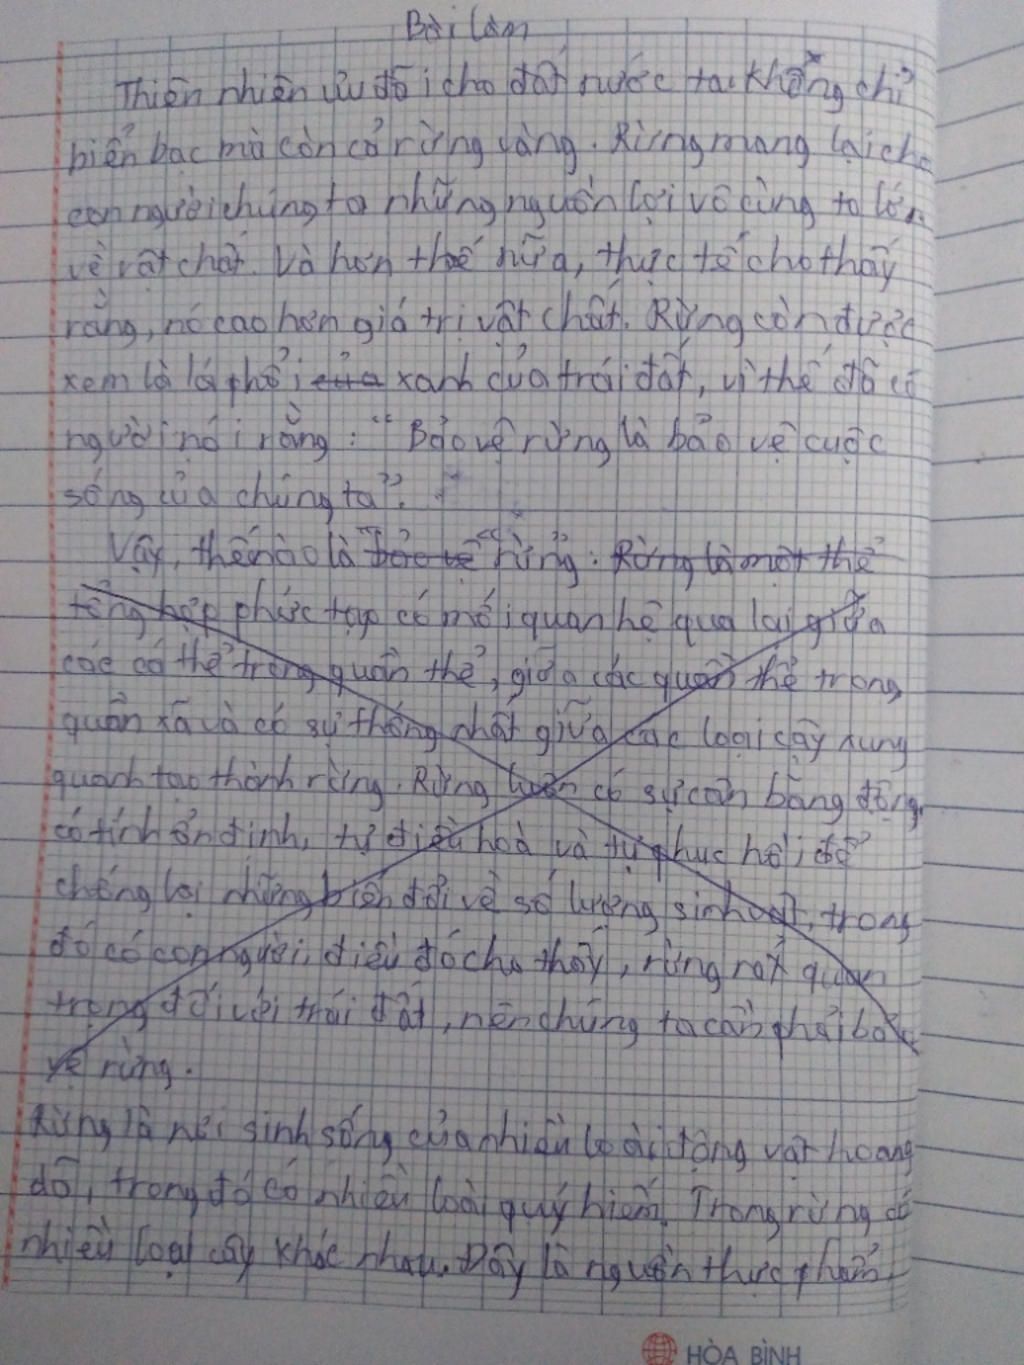 Bài làm
Thiên nhiên ưu đãi cho đất nước ta không chỉ
biển bạc mà còn cả rừng vàng. Rừng mang lại cho
con người chúng ta những nguồn lợi vô cùng to lớn
về vật chất. Và hơn thế nữa, thực tế cho thấy
rằng, nó cao hơn giá trị vật chất. Rừng còn được
xem là lá phổi của xanh của trái đất, vì thế đã có
người nói rằng: "Bảo vệ rừng là bảo vệ cuộc
sống của chúng ta".
Vậy, thế nào là "bảo vệ "rừng". Rừng là một thể
tổng hợp phức tạp có mối quan hệ qua lại giữa
các cá thể trong quần thể, giữa các quần thể trong
quần xã và có sự thống nhất giữa các loại cây xung
quanh tạo thành rừng. Rừng luôn có sự cân bằng động,
có tính ổn định, tự điều hoà và tự phục hồi để
chống lại những biến đổi về số lượng sinh vật, trong
đó có con người, điều đó cho thấy, rừng rất quan
trọng đối với trái đất, nên chúng ta cần phải bảo
vệ rừng.
Rừng là nơi sinh sống của nhiều loài động vật hoang
dã, trong đó có nhiều loài quý hiếm. Trong rừng có
nhiều loại cây khác nhau. Đây là nguồn thực phẩm
HÒA BÌNH